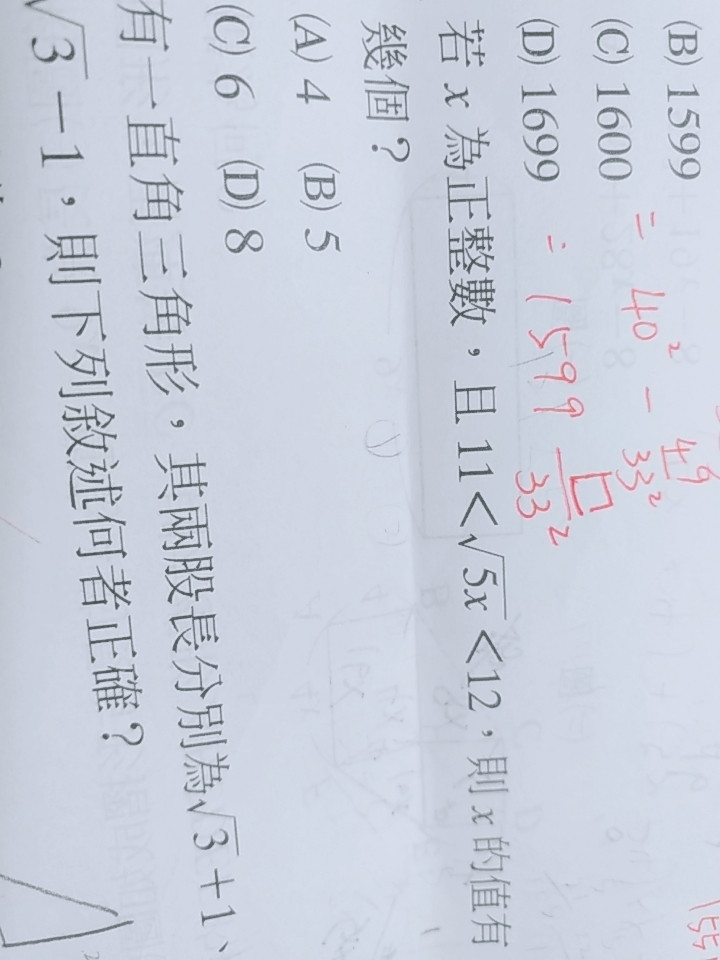 (B) 1599
(C) 1600
= 40² - 49/33²
(D) 1699
= 1599 □/33²
若 x 為正整數，且 11<√5x<12，則 x 的值有
幾個？
(A) 4 (B) 5
(C) 6 (D) 8
有一直角三角形，其兩股長分別為√3+1、
√3-1，則下列敘述何者正確？